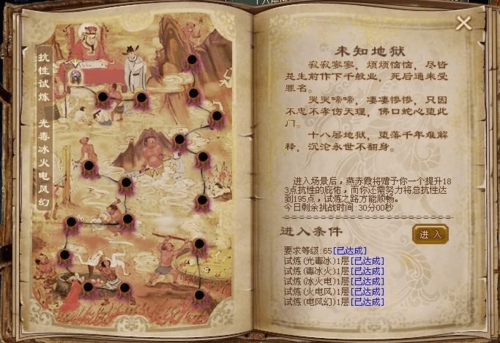 抗性试炼 光毒冰火电风幻
未知地狱
寂寂寥寥，烦烦恼恼，尽皆
是生前作下千般业，死后通来受
罪名。
哭哭啼啼，凄凄惨惨，只因
不忠不孝伤天理，佛口蛇心堕此
门。
十八层地狱，堕落千年难解
释，沉沦永世不翻身。
进入场景后，燕赤霞将赠予你一个提升18
3点抗性的庇佑，而你还需努力将总抗性达
到195点，试炼之路方能顺畅。
今日剩余挑战时间:30分00秒
进入条件
进入
要求等级:65[已达成]
试炼(光毒冰)1层[已达成]
试炼(毒冰火)1层[已达成]
试炼(冰火电)1层[已达成]
试炼(火电风)1层[已达成]
试炼(电风幻)1层[已达成]